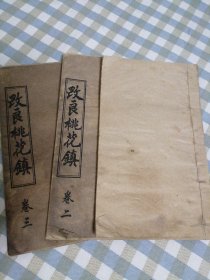 改良桃花鎮
卷三
改良桃花鎮
卷二